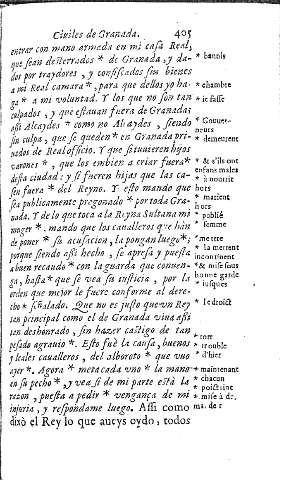 Ciuiles de Granada. 405
entrar con mano armada en mi casa Real,
que sean desterrados * de Granada, y da- * bannis
dos por traydores, y confiscados sin bienes
a mi Real camara *, para que dellos yo ha- * chambre
ga * a mi voluntad. Y los que no son tan * ie fasse
culpados, y que estauan fuera de Granada;
assi Alcaydes * como no Alcaydes, siendo * Gouuer-
neurs
sin culpa, que se queden * en Granada pri- * demeurent
uados de Real officio. Y que si tuuieren hijos
varones *, que los embien a criar fuera * * & s'ils ont
enfans males
desta ciudad: y si fueren hijas que las ca- * à nourrir
hors
sen fuera * del Reyno. Y esto mando que * marient
hors
sea publicamente pregonado * por toda Gra- * publié
nada. Y de lo que toca a la Reyna Sultana mi
muger *. mando que los caualleros que han * femme
de poner * su acusacion, la pongan luego *; * mettre
* la mettent
porque siendo assi hecho, se apresa y puesta incontinent
a buen recaudo * con la guarda que conuen- * & mise sous
bonne garde
ga, hasta * que se vea su justicia, por la * iusques
orden que mejor le fuere conforme al dere-
cho * señalado. Que no es justo que vn Rey * le droict
tan principal como el de Granada viua assi
tan deshonrado, sin hazer castigo de tan
pesado agrauio *. Esto fuè la causa, buenos * tort
y leales caualleros, del alboroto * que vuo * trouble
ayer *. Agora * meta cada vno * la mano * d'hier
* maintenant
* chacun
en su pecho *, y vea si de mi parte està la * poictrine
razon, puesta a pedir * vengança de mi
injuria, y respondame luego. Assi como
dixò el Rey lo que aueys oydo, todos